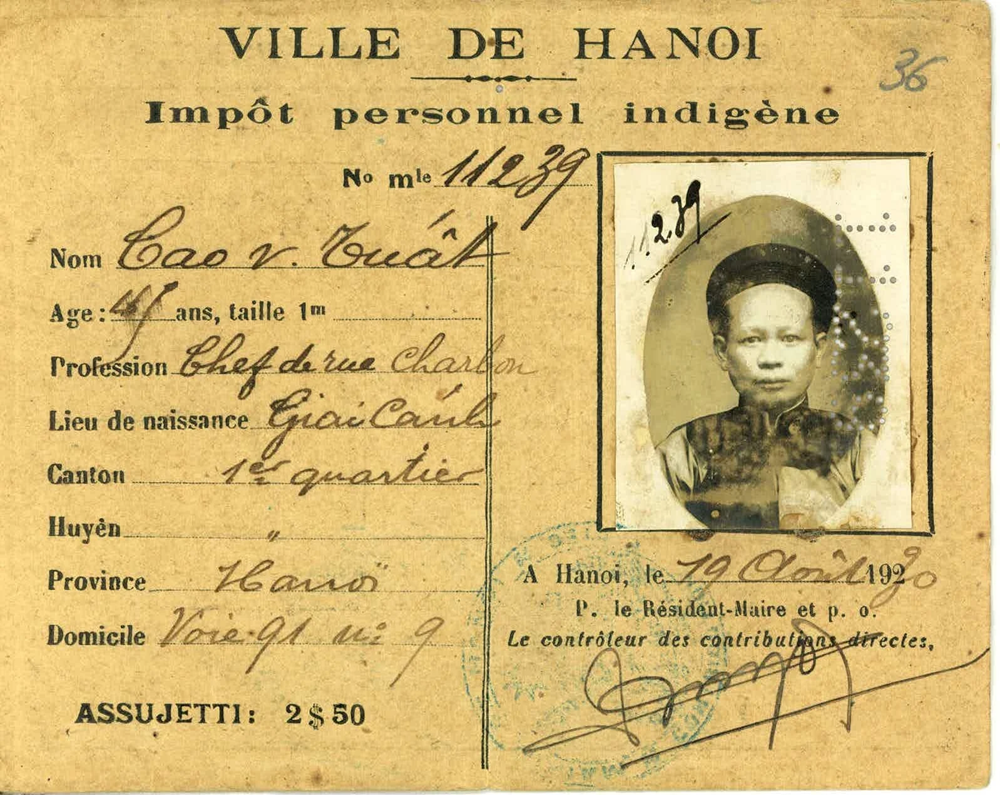 VILLE DE HANOI
36
Impôt personnel indigène
No mle 11239
11239
Nom Cao v. Tuất
Age: 45 ans, taille 1m
Profession Chef de rue Charbon
Lieu de naissance Giai Cảnh
Canton 1er quartier
Huyện "
Province Hanoï
Domicile Voie 91 no 9
ASSUJETTI: 2$50
A Hanoi, le 19 Août 1930
P. le Résident-Maire et p. o.
Le contrôleur des contributions directes,